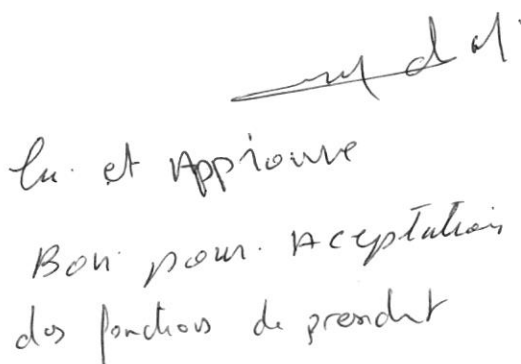 lu et Approuve
Bon pour Aceptation
des fonctions de president